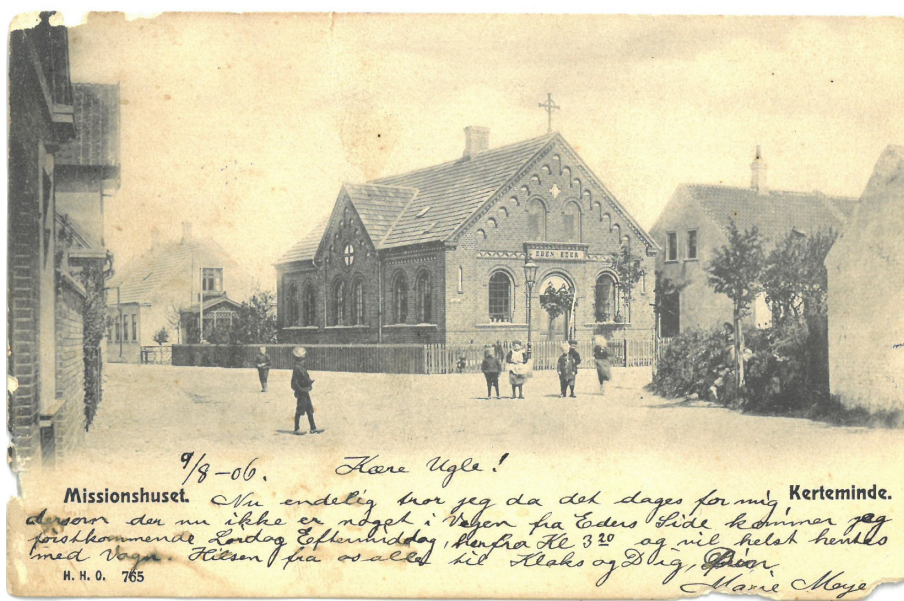 EBEN-EZER
9/8-06. Kære Ugle!
Missionshuset.
Kerteminde.
Nu endelig tror jeg da det dages for mig,
dersom der nu ikke er noget i Vejen fra Eders Side kommer jeg
førstkommende Lördag Eftermiddag, herfra Kl 3 20 og vil helst hentes
med Vogn. Hilsen fra os alle til Klaks og Dig,
Marie Meye
H. H. O. 765